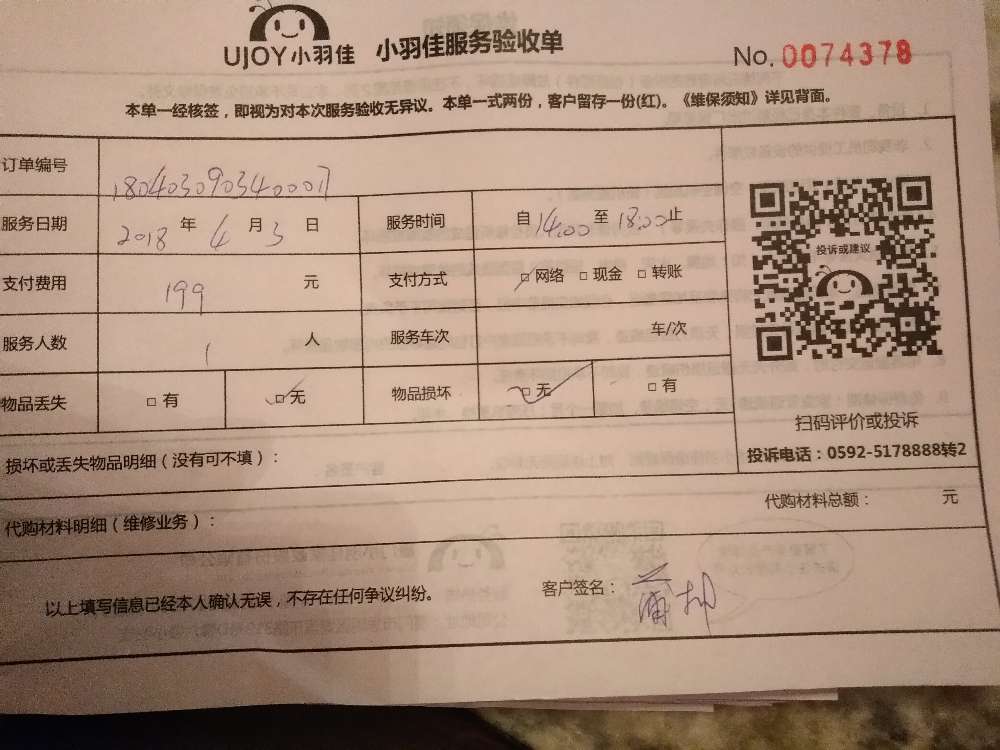 UJOY小羽佳 小羽佳服务验收单 No. 0074378
本单一经核签，即视为对本次服务验收无异议。本单一式两份，客户留存一份(红)。《维保须知》详见背面。
订单编号 1804030903400017
服务日期 2018 年 4 月 3 日 服务时间 自 14:00 至 18:00 止
投诉或建议
支付费用 199 元 支付方式 □ 网络 □ 现金 □ 转账
服务人数 1 人 服务车次 车/次
物品丢失 □ 有 □ 无 物品损坏 □ 无 □ 有
扫码评价或投诉
投诉电话：0592-5178888转2
损坏或丢失物品明细（没有可不填）：
代购材料总额： 元
代购材料明细（维修业务）：
以上填写信息已经本人确认无误，不存在任何争议纠纷。 客户签名：